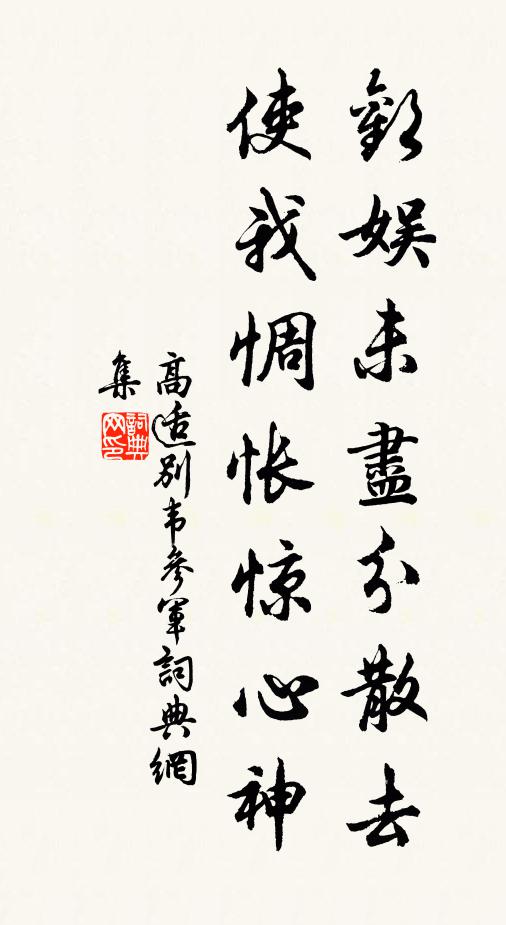 歡娛未盡分散去
使我惆悵惊心神
高适別韦參軍詞典網
集
詞典
网印